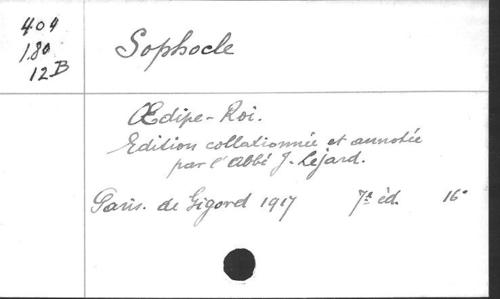 404
180
12B
Sophocle
Œdipe-Roi.
Edition collationnée et annotée
par l'Abbé J. Lejard.
Paris. de Gigord 1917 7e éd. 16°